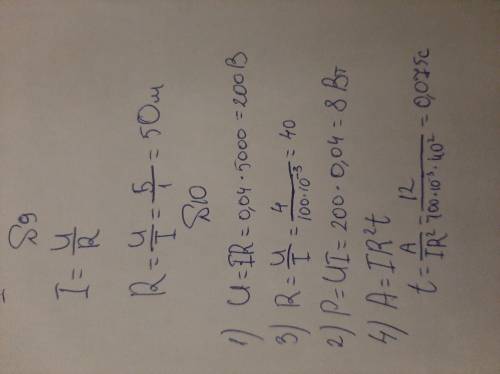 §9
I = U/R
R = U/I = 5/1 = 5 Ом
§10
1) U = IR = 0,04 · 5000 = 200 В
3) R = U/I = 4/100·10⁻³ = 40
2) P = UI = 200 · 0,04 = 8 Вт
4) A = IR²t
t = A/IR² = 12/100·10⁻³·40² = 0,075 с